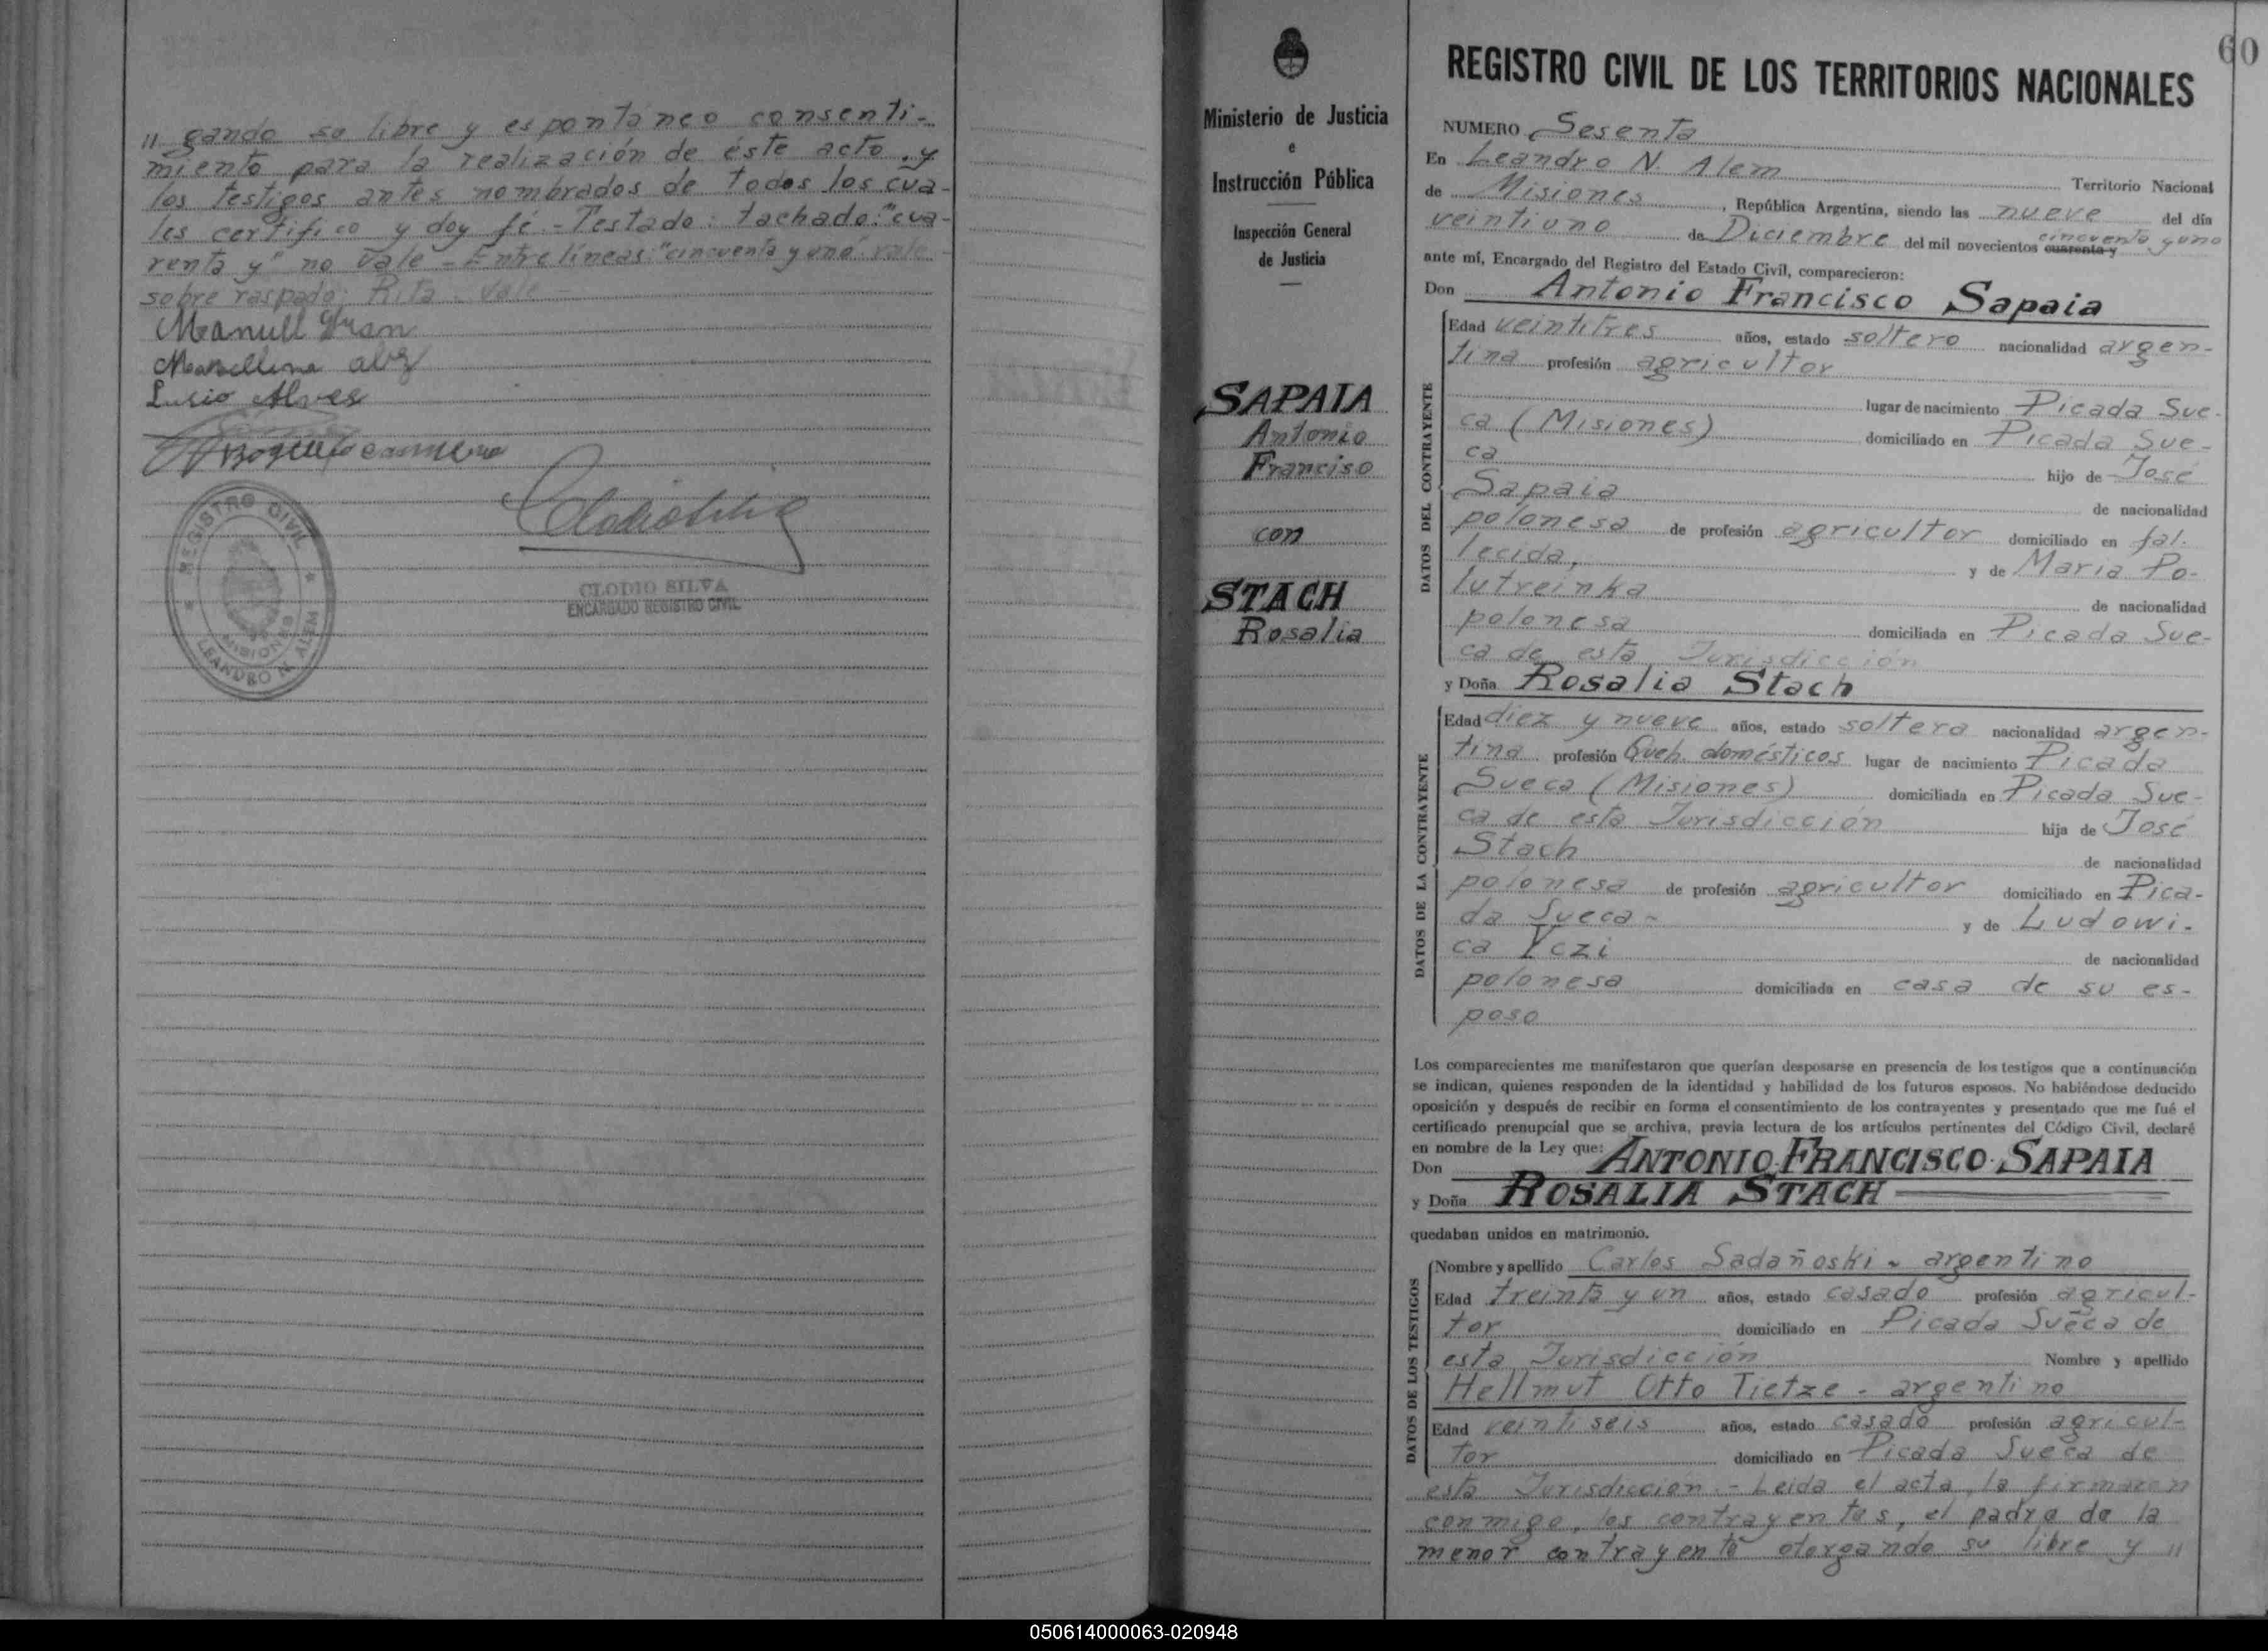 " gando so libre y espontáneo consenti-
miento para la realización de éste acto, y
los testigos antes nombrados de todos los cua-
les certifico y doy fé - Testado: tachado: "cua-
renta y" no vale - Entre líneas: "cincuenta y uno" vale
sobre raspado: Rita - vale -
Manull
Lusio Alves
REGISTRO CIVIL
MISIONES
LEANDRO N. ALEM
CLODIO SILVA
ENCARGADO REGISTRO CIVIL
60
Ministerio de Justicia
e
Instrucción Pública
Inspección General
de Justicia
SAPAIA
Antonio
Franciso
con
STACH
Rosalia
REGISTRO CIVIL DE LOS TERRITORIOS NACIONALES
NUMERO Sesenta
En Leandro N. Alem Territorio Nacional
de Misiones, República Argentina, siendo las nueve del día
veintiuno de Diciembre del mil novecientos cuarenta y cincuenta y uno
ante mí, Encargado del Registro del Estado Civil, comparecieron:
Don Antonio Francisco Sapaia
DATOS DEL CONTRAYENTE
Edad veintitres años, estado soltero nacionalidad argen-
tina profesión agricultor
lugar de nacimiento Picada Sue-
ca (Misiones) domiciliado en Picada Sue-
ca hijo de José
Sapaia de nacionalidad
polonesa de profesión agricultor domiciliado en fal-
lecida, y de Maria Po-
lutreinka de nacionalidad
polonesa domiciliada en Picada Sue-
ca de esta Jurisdicción
y Doña Rosalia Stach
DATOS DE LA CONTRAYENTE
Edad diez y nueve años, estado soltera nacionalidad argen-
tina profesión Queh. domésticos lugar de nacimiento Picada
Sueca (Misiones) domiciliada en Picada Sue-
ca de esta Jurisdicción hija de José
Stach de nacionalidad
polonesa de profesión agricultor domiciliado en Pica-
da Sueca - y de Ludowi-
ca Yczi de nacionalidad
polonesa domiciliada en casa de su es-
poso
Los comparecientes me manifestaron que querían desposarse en presencia de los testigos que a continuación
se indican, quienes responden de la identidad y habilidad de los futuros esposos. No habiéndose deducido
oposición y después de recibir en forma el consentimiento de los contrayentes y presentado que me fué el
certificado prenupcial que se archiva, previa lectura de los artículos pertinentes del Código Civil, declaré
en nombre de la Ley que:
Don ANTONIO FRANCISCO SAPAIA
y Doña ROSALIA STACH
quedaban unidos en matrimonio.
DATOS DE LOS TESTIGOS
Nombre y apellido Carlos Sadañoski - argentino
Edad treinta y un años, estado casado profesión agricul-
tor domiciliado en Picada Sueca de
esta Jurisdicción Nombre y apellido
Hellmut Otto Tietze - argentino
Edad veintiseis años, estado casado profesión agricul-
tor domiciliado en Picada Sueca de
esta Jurisdicción - Leida el acta, la firmaron
conmigo, los contrayentes, el padre de la
menor contrayente otorgando su libre y "
050614000063-020948